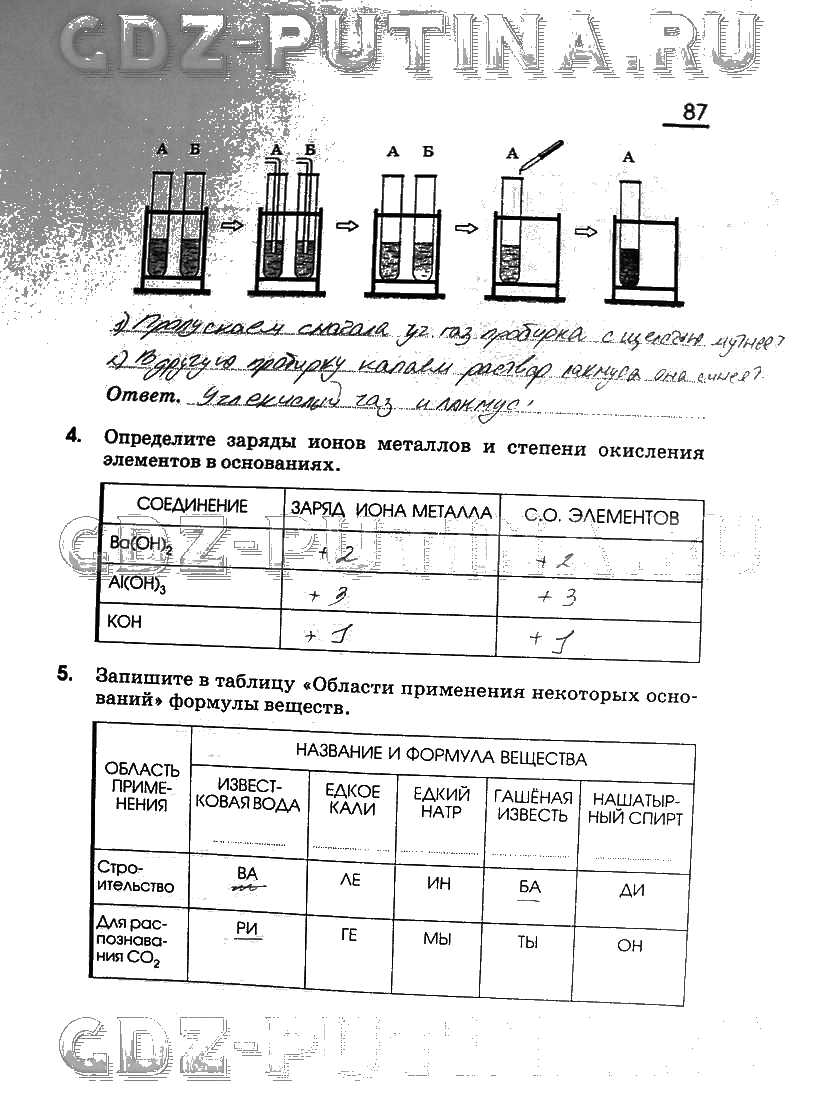 GDZ-PUTINA.RU
87
А Б А Б А Б А А
1) Пропускаем сначала уг. газ пробирка с щелочью мутнеет
2) В другую пробирку капаем раствор лакмуса она синеет.
Ответ. Углекислый газ и лакмус.
4. Определите заряды ионов металлов и степени окисления
элементов в основаниях.
СОЕДИНЕНИЕ ЗАРЯД ИОНА МЕТАЛЛА С.О. ЭЛЕМЕНТОВ
GDZ-PUTINA.RU
Ba(OH)₂ +2 +2
Al(OH)₃ +3 +3
KOH +1 +1
5. Запишите в таблицу «Области применения некоторых осно-
ваний» формулы веществ.
ОБЛАСТЬ
ПРИМЕ-
НЕНИЯ
НАЗВАНИЕ И ФОРМУЛА ВЕЩЕСТВА
ИЗВЕСТ-
КОВАЯ ВОДА
ЕДКОЕ
КАЛИ
ЕДКИЙ
НАТР
ГАШЁНАЯ
ИЗВЕСТЬ
НАШАТЫР-
НЫЙ СПИРТ
Стро-
ительство
ВА ЛЕ ИН БА ДИ
Для рас-
познава-
ния CO₂
РИ ГЕ МЫ ТЫ ОН
GDZ-PUTINA